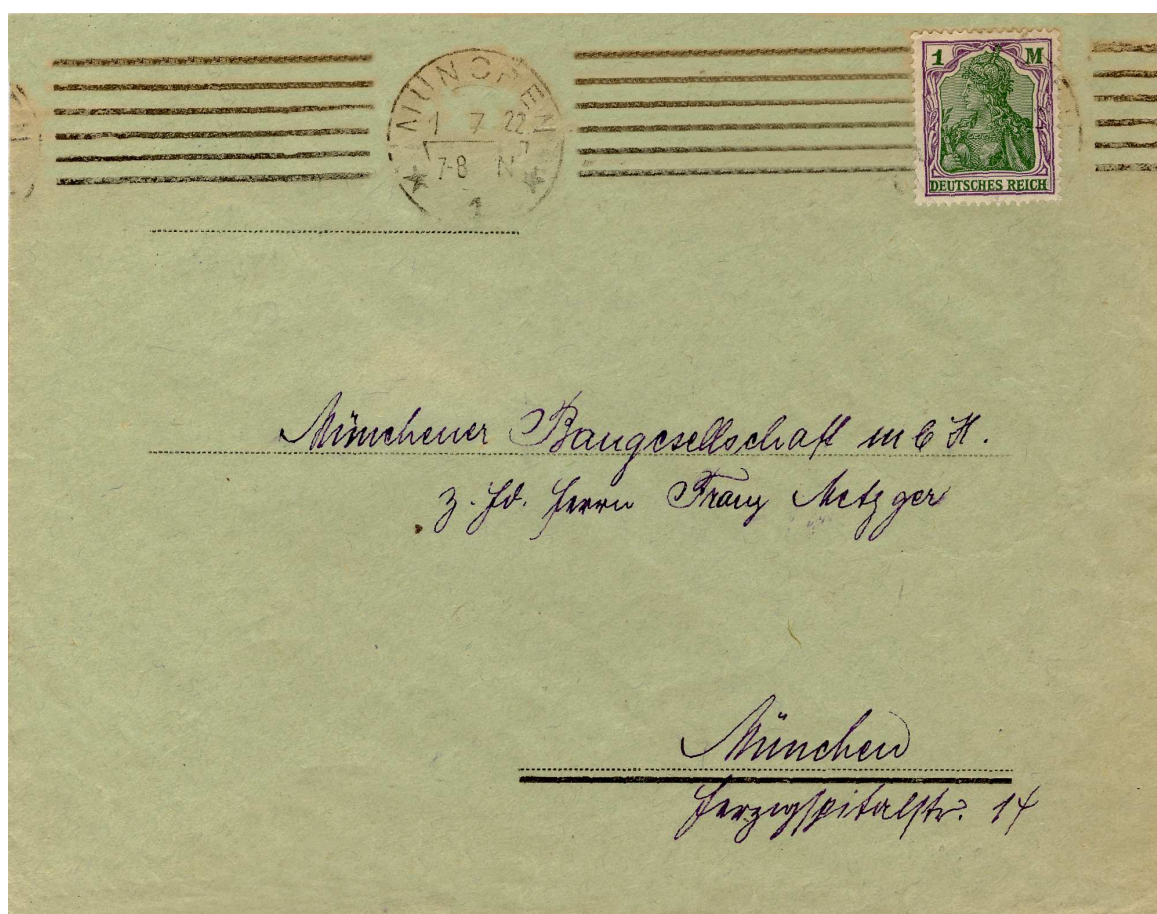 MÜNCHEN
1 7 22
7-8 N
1
1 M
DEUTSCHES REICH
Münchener Baugesellschaft m b H.
z. Hd. Herrn Franz Metzger
München
Herzogspitalstr. 14